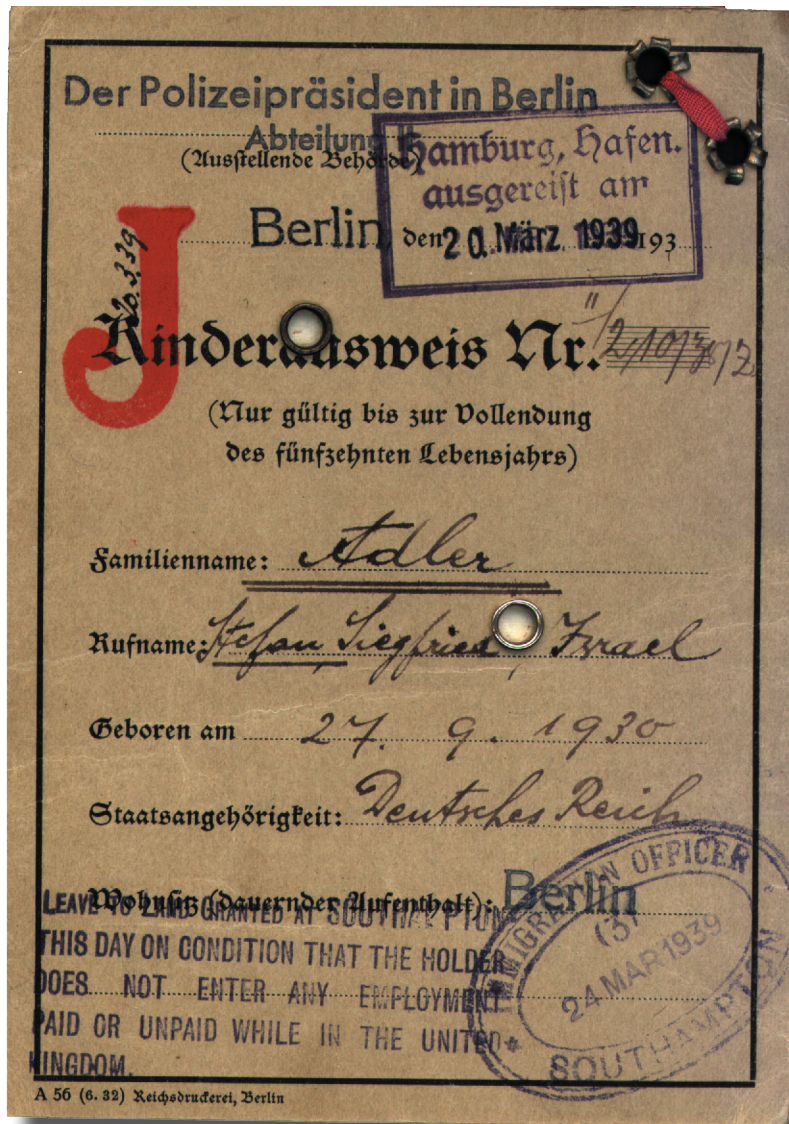 Der Polizeipräsident in Berlin
Abteilung II
(Ausstellende Behörde)
Hamburg, Hafen.
ausgereist am
20. März 1939
Berlin, den 193
J
20.3.39
Kinderausweis Nr.
(Nur gültig bis zur Vollendung
des fünfzehnten Lebensjahrs)
Familienname: Adler
Rufname: Stefan, Siegfried, Israel
Geboren am 27. 9. 1930
Staatsangehörigkeit: Deutsches Reich
Wohnsitz (dauernder Aufenthalt): Berlin
LEAVE TO LAND GRANTED AT SOUTHAMPTON
THIS DAY ON CONDITION THAT THE HOLDER
DOES NOT ENTER ANY EMPLOYMENT
PAID OR UNPAID WHILE IN THE UNITED
KINGDOM.
IMMIGRATION OFFICER
(3)
24 MAR 1939
* SOUTHAMPTON
A 56 (6. 32) Reichsdruckerei, Berlin